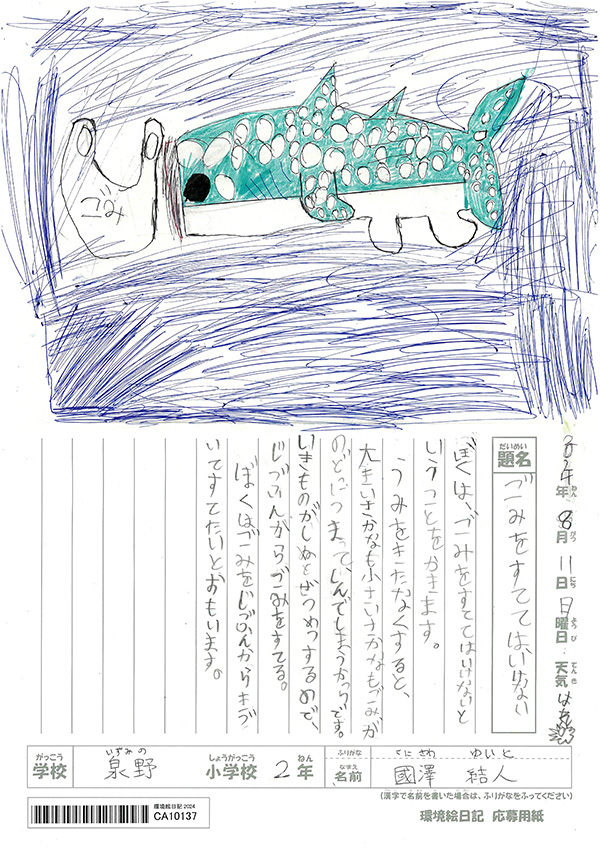 ごみ
年8月11日日曜日 天気 はれ
題名 ごみをすててはいけない
ぼくは、ごみをすててはいけないと
いうことをかきます。
うみをきたなくすると、
大きいさかなも小さいさかなもごみが
のどにつまって、しんでしまうからです。
いきものがしぬとぜつめつするので、
じぶんからごみをすてる。
ぼくはごみをじぶんからきづ
いてすてたいとおもいます。
がっこう いずみの しょうがっこう ねん ふりがな くにさわ ゆいと
学校 泉野 小学校 2年 なまえ 名前 國澤 結人
(漢字で名前を書いた場合は、ふりがなをふってください)
環境絵日記 2024
CA10137
環境絵日記 応募用紙